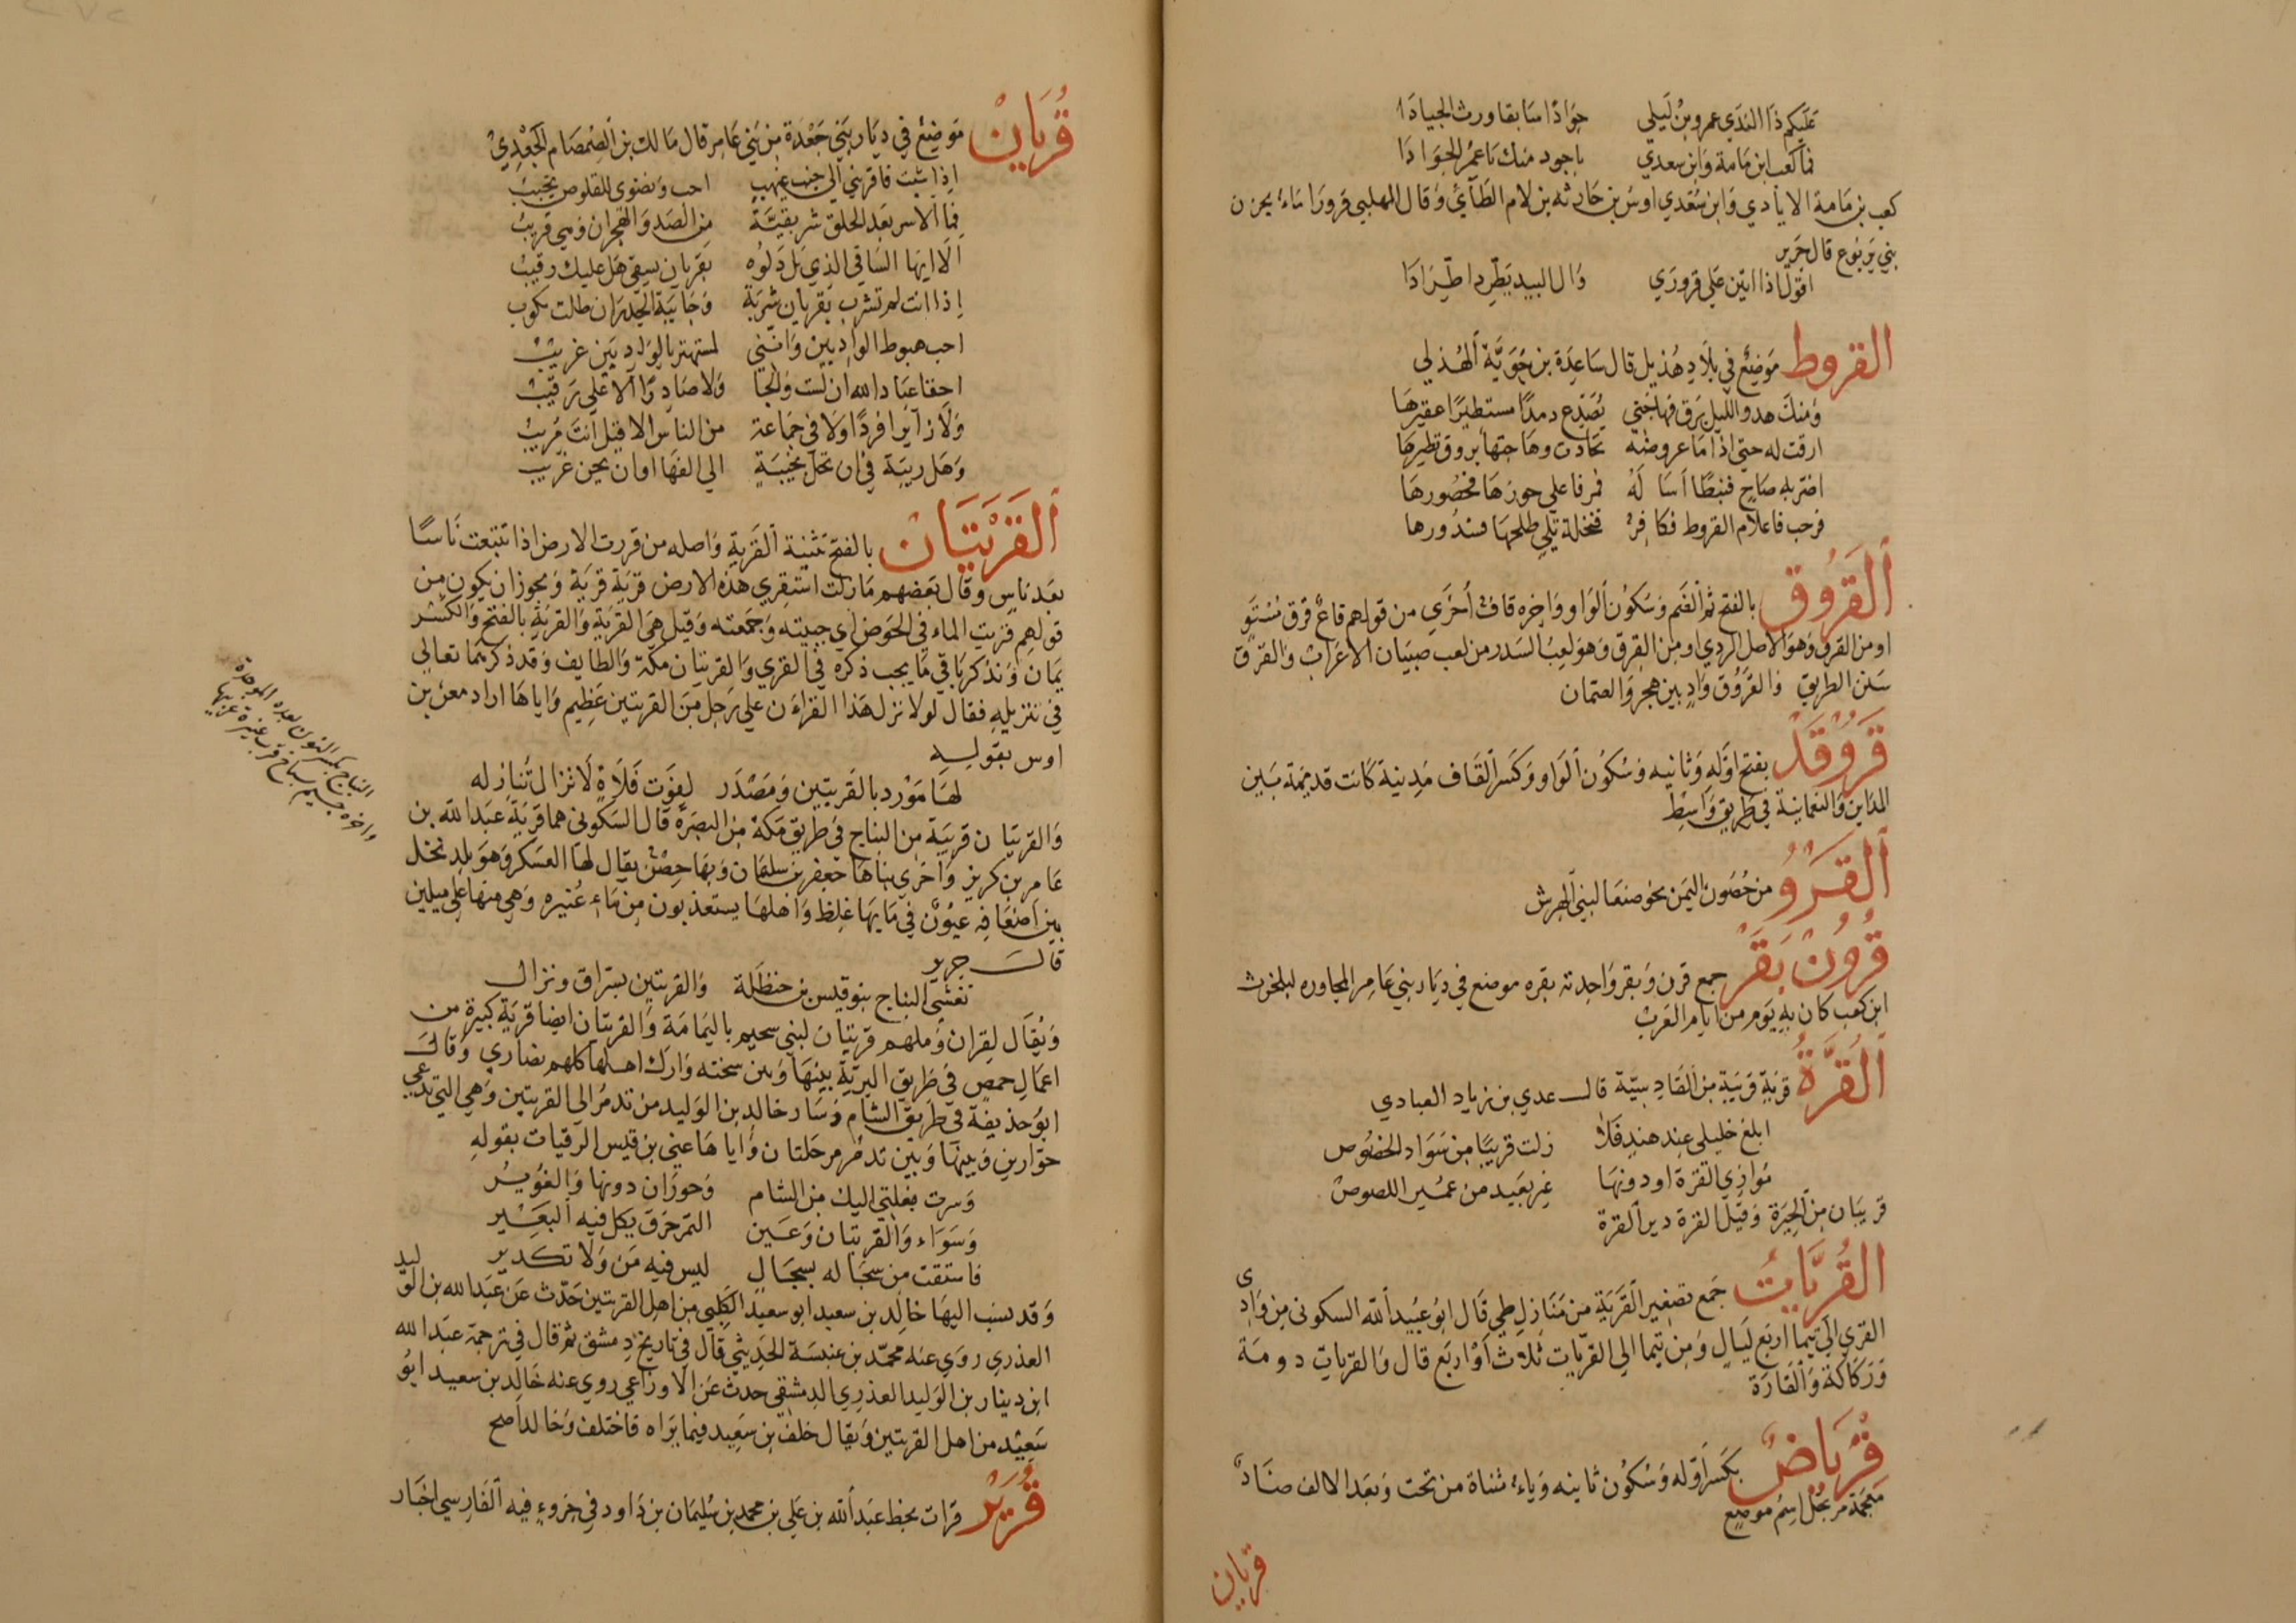 عليكم ذا الندي عمرو بن ليلي جوادا سابقا ورث الجيادا
فما كعب ابن مامة وابن سعدي باجود منك يا عمر الجوادا
كعب بن مامة الايادي وابن سعدي اوس بن حارثه بن لام الطائي وقال المهلبي قرورا ماء بحزن
بني يربوع قال جرير
اقول اذا اتين علي قروري وال البيد يطرد اطرادا
القروط موضع في بلاد هذيل قال ساعدة بن جوية الهذلي
ومنك هدو الليل برق فهاجني يصدع رمدا مستطيرا عقيرها
ارقت له حتي اذا ما عروضه تحادت وهاجتها بروق تطيرها
اضر به ضاح فنبطا اسالة فمر فاعلي حوزها فخصورها
فرحب فاعلام القروط فكافر فنخلة تلي طلحها فسدورها
القروق بالفتح ثم الضم وسكون الواو واخره قاف أخري من قولهم قاع قرق مستو
او من القرق وهو الاصل الردي او من القرق وهو لعب السدر من لعب صبيان الاعراب والقرق
سنن الطريق والقروق واد بين هجر والصمان
قروقد بفتح اوله وثانيه وسكون الواو وكسر القاف مدينة كانت قديمة بين
المداين والنعمانية في طريق واسط
القرو من حصون اليمن نحو صنعا لبني الهرش
قرون بقر جمع قرن وبقر واحدته بقره موضع في ديار بني عامر المجاوره لبلحرث
ابن كعب كان به يوم من ايام العرب
القرة قرية قريبة من القادسية قال عدي بن زياد العبادي
ابلغ خليلي عند هند فلا زلت قريبا من سواد الخصوص
موازي القرة او دونها غير بعيد من عمير اللصوص
قريبان من الحيرة وقيل القرة دير القرة
القريات جمع تصغير القرية من منازل طي قال ابو عبيد الله السكوني من وادي
القري الي تيما اربع ليال ومن تيما الي القريات ثلاث أو اربع قال والقريات دومة
وزكاكة والقارة
قرياض بكسر اوله وسكون ثانيه وياء مثناة من تحت وبعد الالف ضاد
معجمة مرتجل اسم موضع
قريان
قريان موضع في ديار بني جعدة من بني عامر قال مالك بن الصمصام الجعدي
اذا شئت فاقرني الي جنب غيهب احب ونضوي للقلوص نجيب
فما الاسر بعد الحلق شر بقية من الصد والهجران وهي قريب
الا ايها الساقي الذي بل دلوه بقريان يسقي هل عليك رقيب
اذا انت لم تشرب بقريان شربة وجانبة الجدران ظلت تلوب
احب هبوط الواديين وانني لمستهتر بالواديين غريب
احقا عباد الله ان لست والجا ولا صادرا الا علي رقيب
ولا زايرا فردا ولا في جماعة من الناس الا قيل انت مريب
وهل ريبة في ان تحن نجيبة الي الفها او ان يحن غريب
القريتان بالفتح تثنية القرية واصله من قروت الارض اذا تتبعت ناسا
بعد ناس وقال بعضهم مازلت استقري هذه الارض قرية قرية ويجوز ان يكون من
قولهم قريت الماء في الحوض اي جبيته وجمعته وقيل هي القرية والقرية بالفتح والكسر
يمان ونذكر باقي ما يجب ذكره في القري والقريتان مكة والطايف وقد ذكرهما تعالي
في تنزيله فقال لولا نزل هذا القران علي رجل من القريتين عظيم واياها اراد معن بن
اوس بقوليه
لها مورد بالقريتين ومصدر لفوت فلاة لا تزال تنازله
والقريتان قريبة من النباج في طريق مكة من البصرة قال السكوني هما قرية عبد الله بن
عامر بن كريز وأخري بناها جعفر بن سليمان وبها حصن يقال لها العسكر وهو بلد نخل
بين اضعافه عيون في مايها غلظ واهلها يستعذبون من ماء عنيزه وهي منها علي ميلين
قال جرير
تغشي النباج بنو قيس بن حنظلة والقريتين بسراق ونزال
ويقال لقران وملهم قريتان لبني سحيم باليمامة والقريتان ايضا قرية كبيرة من
اعمال حمص في طريق البرية بينها وبين سخنه وارك اهلها كلهم نصاري وقال
ابو حذيفة في طريق الشام وسار خالد بن الوليد من تدمر الي القريتين وهي التي تدعي
حوارين وبينها وبين تدمر مرحلتان وايا ها عني بن قيس الرقيات بقوله
وسرت بغلتي اليك من الشام وحوران دونها والغوير
وسواء والقريتان وعين التمر خرق يكل فيه البعير
فاستقت من سجاله بسجال ليس فيه من ولا تكدير
وقد نسب اليها خالد بن سعيد ابو سعيد الكلبي من اهل القريتين حدث عن عبد الله بن الوليد
العذري روي عنه محمد بن عنبسة الحديثي قال في تاريخ دمشق ثم قال في ترجمة عبد الله
ابن دينار بن الوليد العذري الدمشقي حدث عن الاوزاعي روي عنه خالد بن سعيد ابو
سعيد من اهل القريتين ويقال خلف بن سعيد فيما يراه فاختلف وخالد اصح
قرير قرات بخط عبد الله بن علي بن محمد بن سليمان بن داود في جزوء فيه الفارسي اخبار
النباج بكسر النون بعده الموحدة
واخره جيم